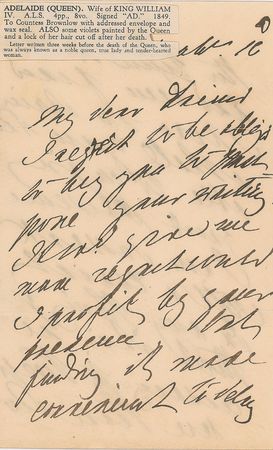 ADELAIDE (QUEEN). Wife of KING WILLIAM
IV. A.L.S. 4pp., 8vo. Signed "AD." 1849.
To Countess Brownlow with addressed envelope and
wax seal. ALSO some violets painted by the Queen
and a lock of her hair cut off after her death.
Letter written three weeks before the death of the Queen, who
was always known as a noble queen, true lady and tender-hearted
woman.
My dear Friend
I regret to be obliged
to beg you to post
pone your
give me
more regret could
I profit by your
presence but
finding it more
convenient to